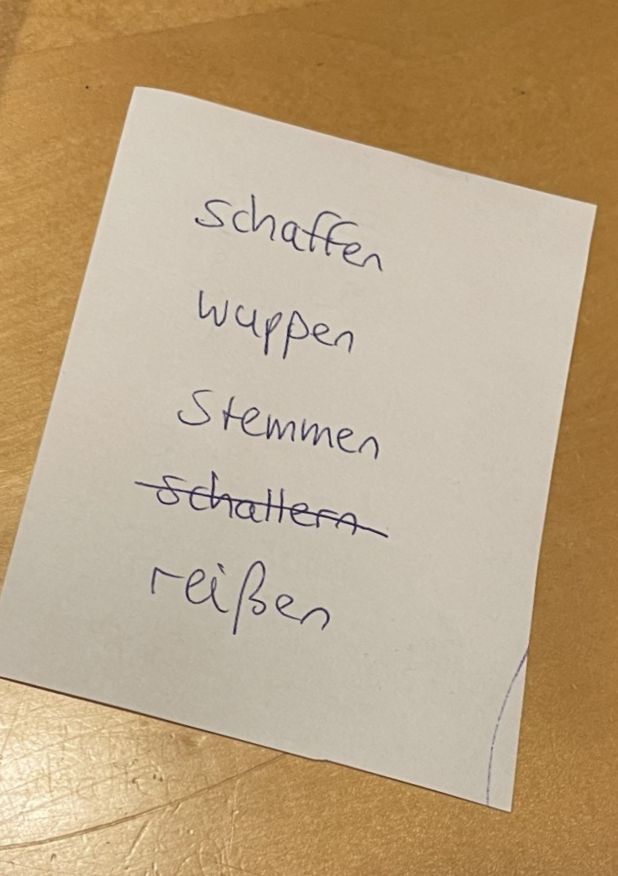 schaffen
wuppen
stemmen
schaltern
reißen